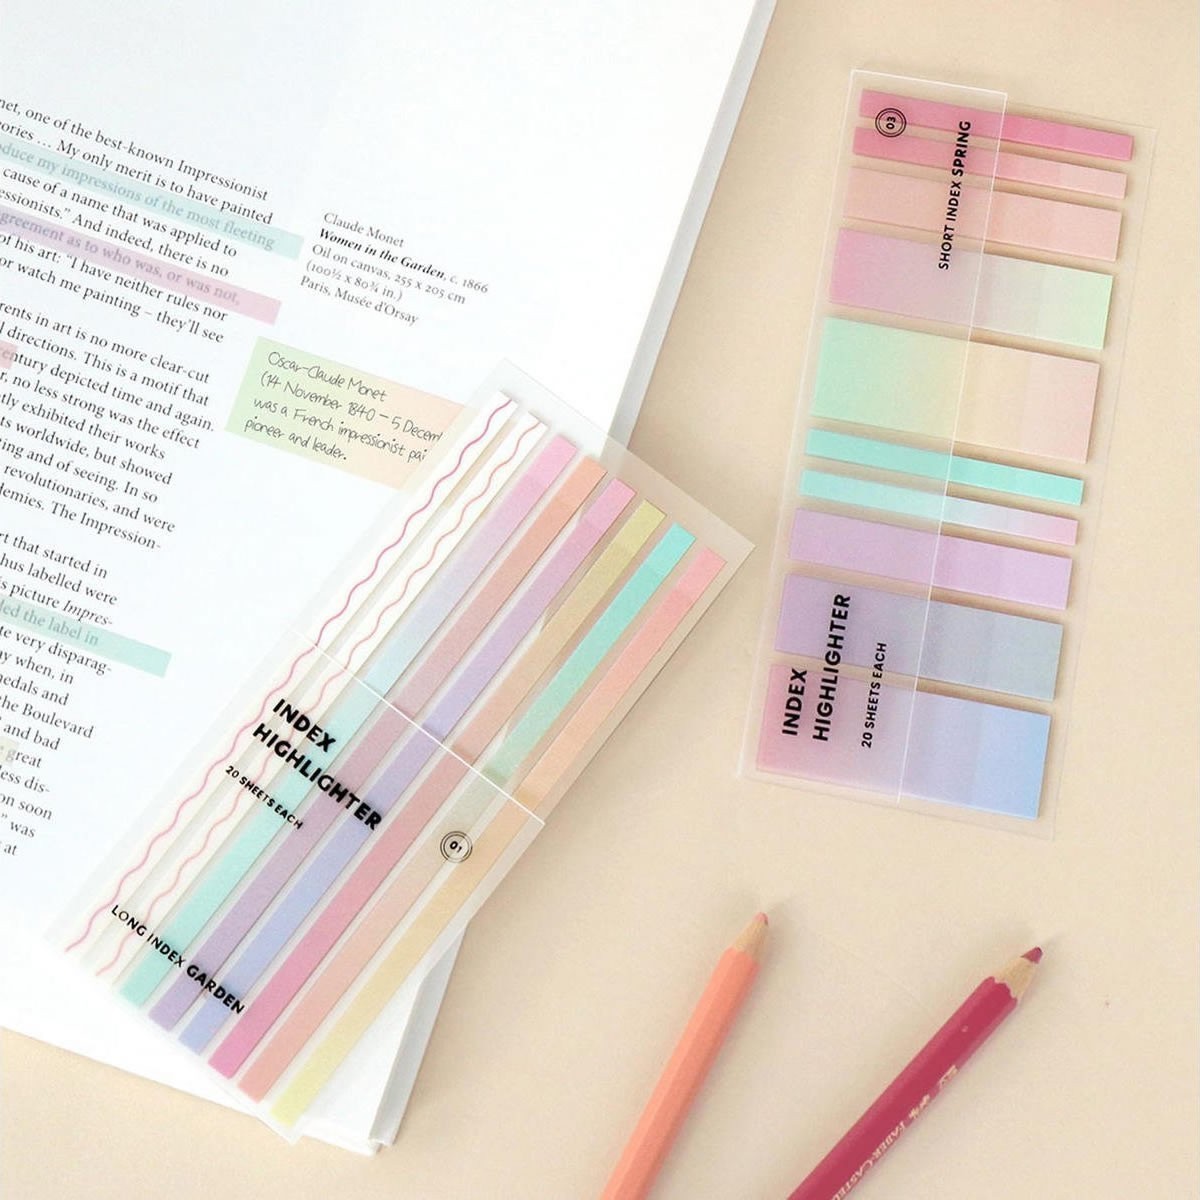 net, one of the best-known Impressionist
ories ... My only merit is to have painted
oduce my impressions of the most fleeting
cause of a name that was applied to
essionists.” And indeed, there is no
greement as to who was, or was not,
of his art: “I have neither rules nor
or watch me painting – they’ll see
rents in art is no more clear-cut
l directions. This is a motif that
entury depicted time and again.
r, no less strong was the effect
tly exhibited their works
ts worldwide, but showed
ing and of seeing. In so
revolutionaries, and were
demies. The Impression-
rt that started in
hus labelled were
s picture Impres-
led the label in
te very disparag-
ay when, in
medals and
the Boulevard
and bad
great
less dis-
on soon
” was
at
Claude Monet
Women in the Garden, c. 1866
Oil on canvas, 255 x 205 cm
(100½ x 80¾ in.)
Paris, Musée d’Orsay
Oscar-Claude Monet
(14 November 1840 – 5 Decem
was a French impressionist pai
pioneer and leader.
INDEX
HIGHLIGHTER
20 SHEETS EACH
01
LONG INDEX GARDEN
03
SHORT INDEX SPRING
INDEX
HIGHLIGHTER
20 SHEETS EACH
FABER-CASTELL